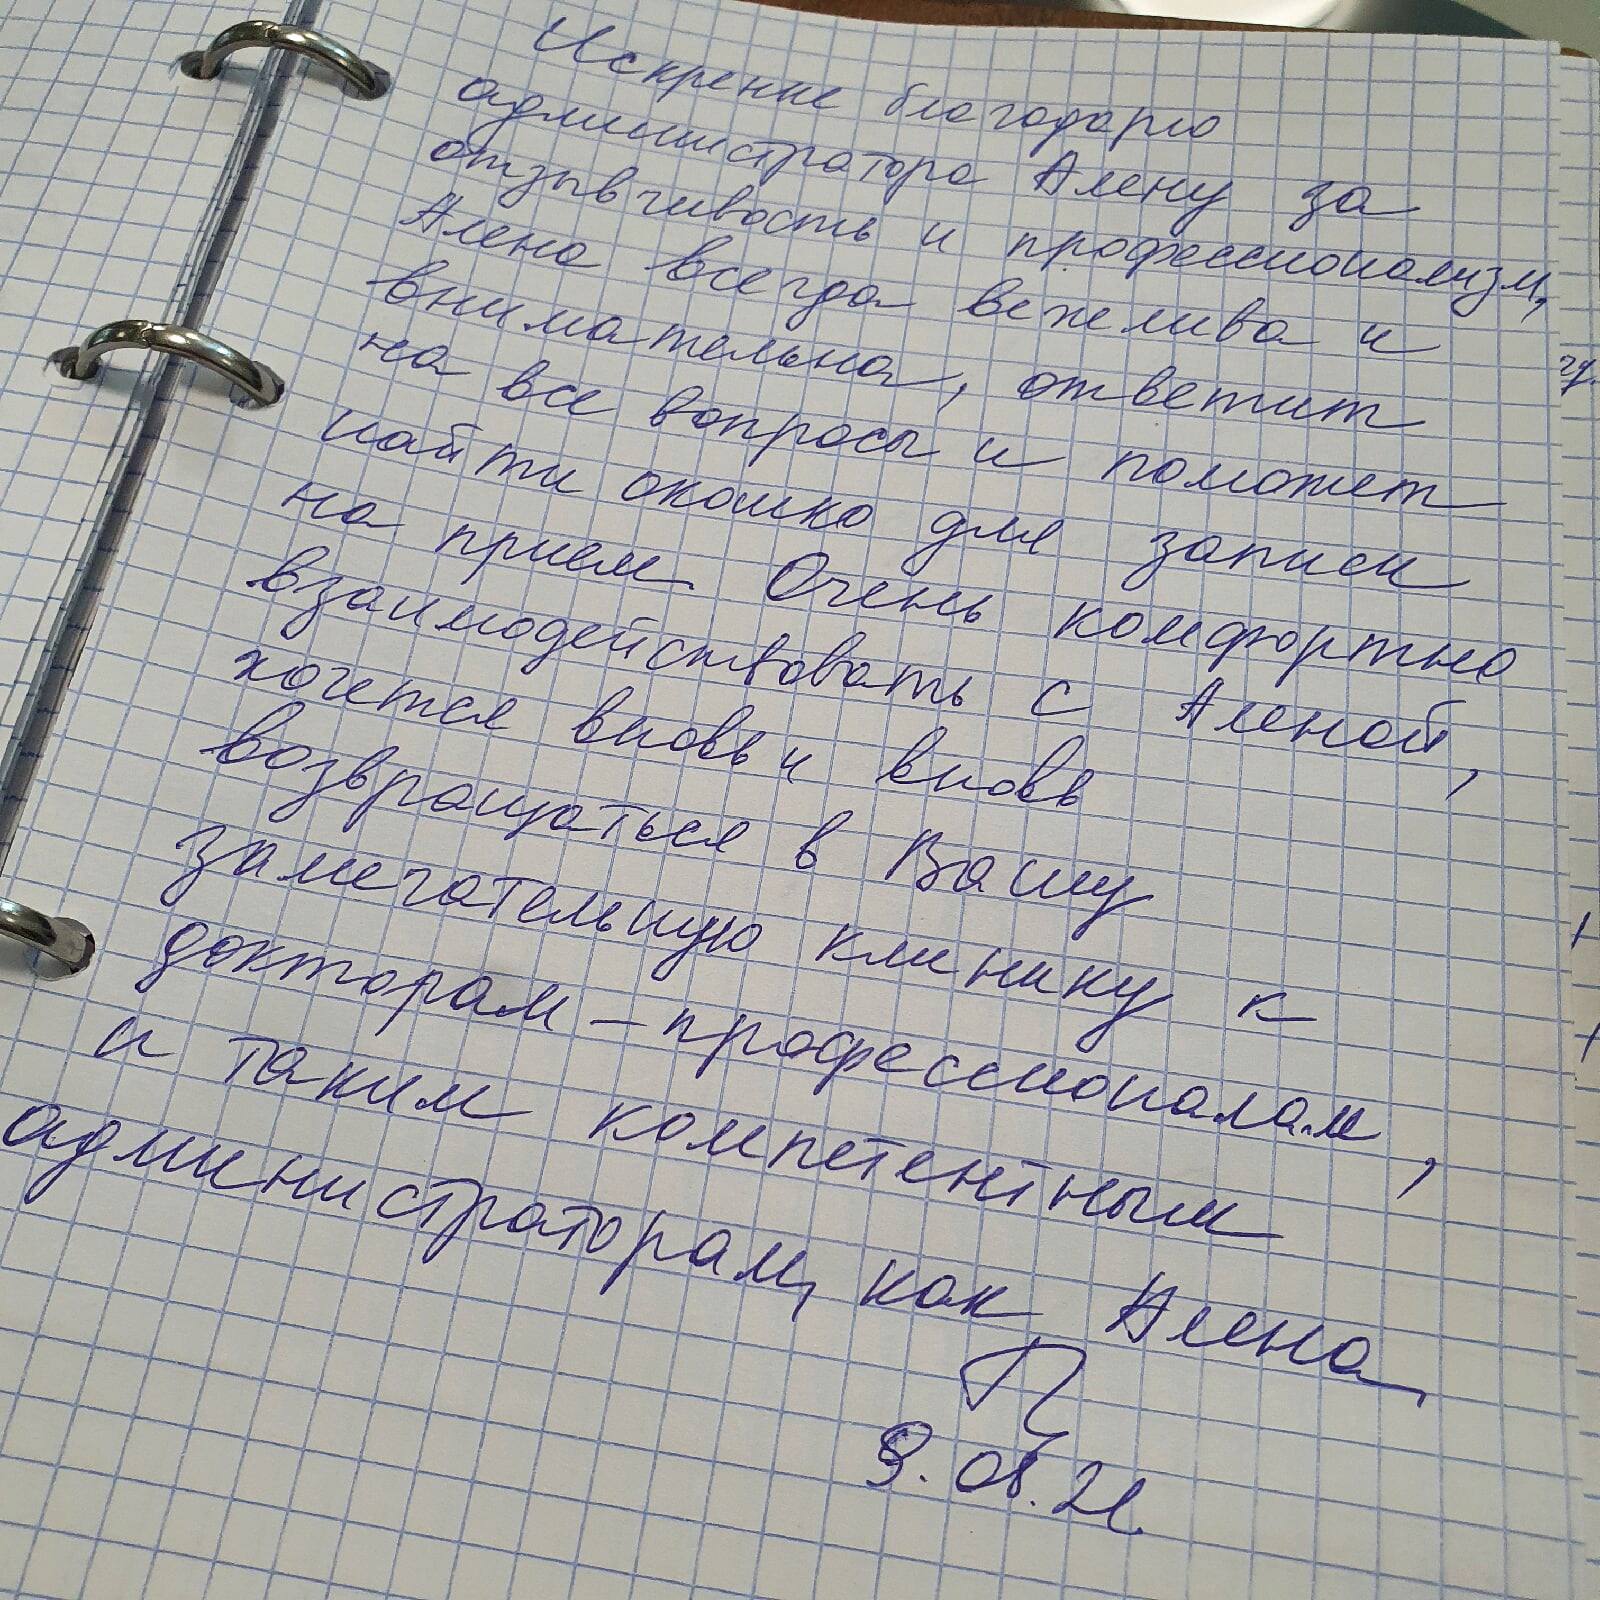 Искренне благодарю
администратора Алену за
отзывчивость и профессионализм,
Алена всегда вежлива и
внимательна, ответит
на все вопросы и поможет
найти окошко для записи
на прием. Очень комфортно
взаимодействовать с Аленой,
хочется вновь и вновь
возвращаться в Вашу
замечательную клинику к
докторам-профессионалам,
и таким компетентным
администраторам, как Алена